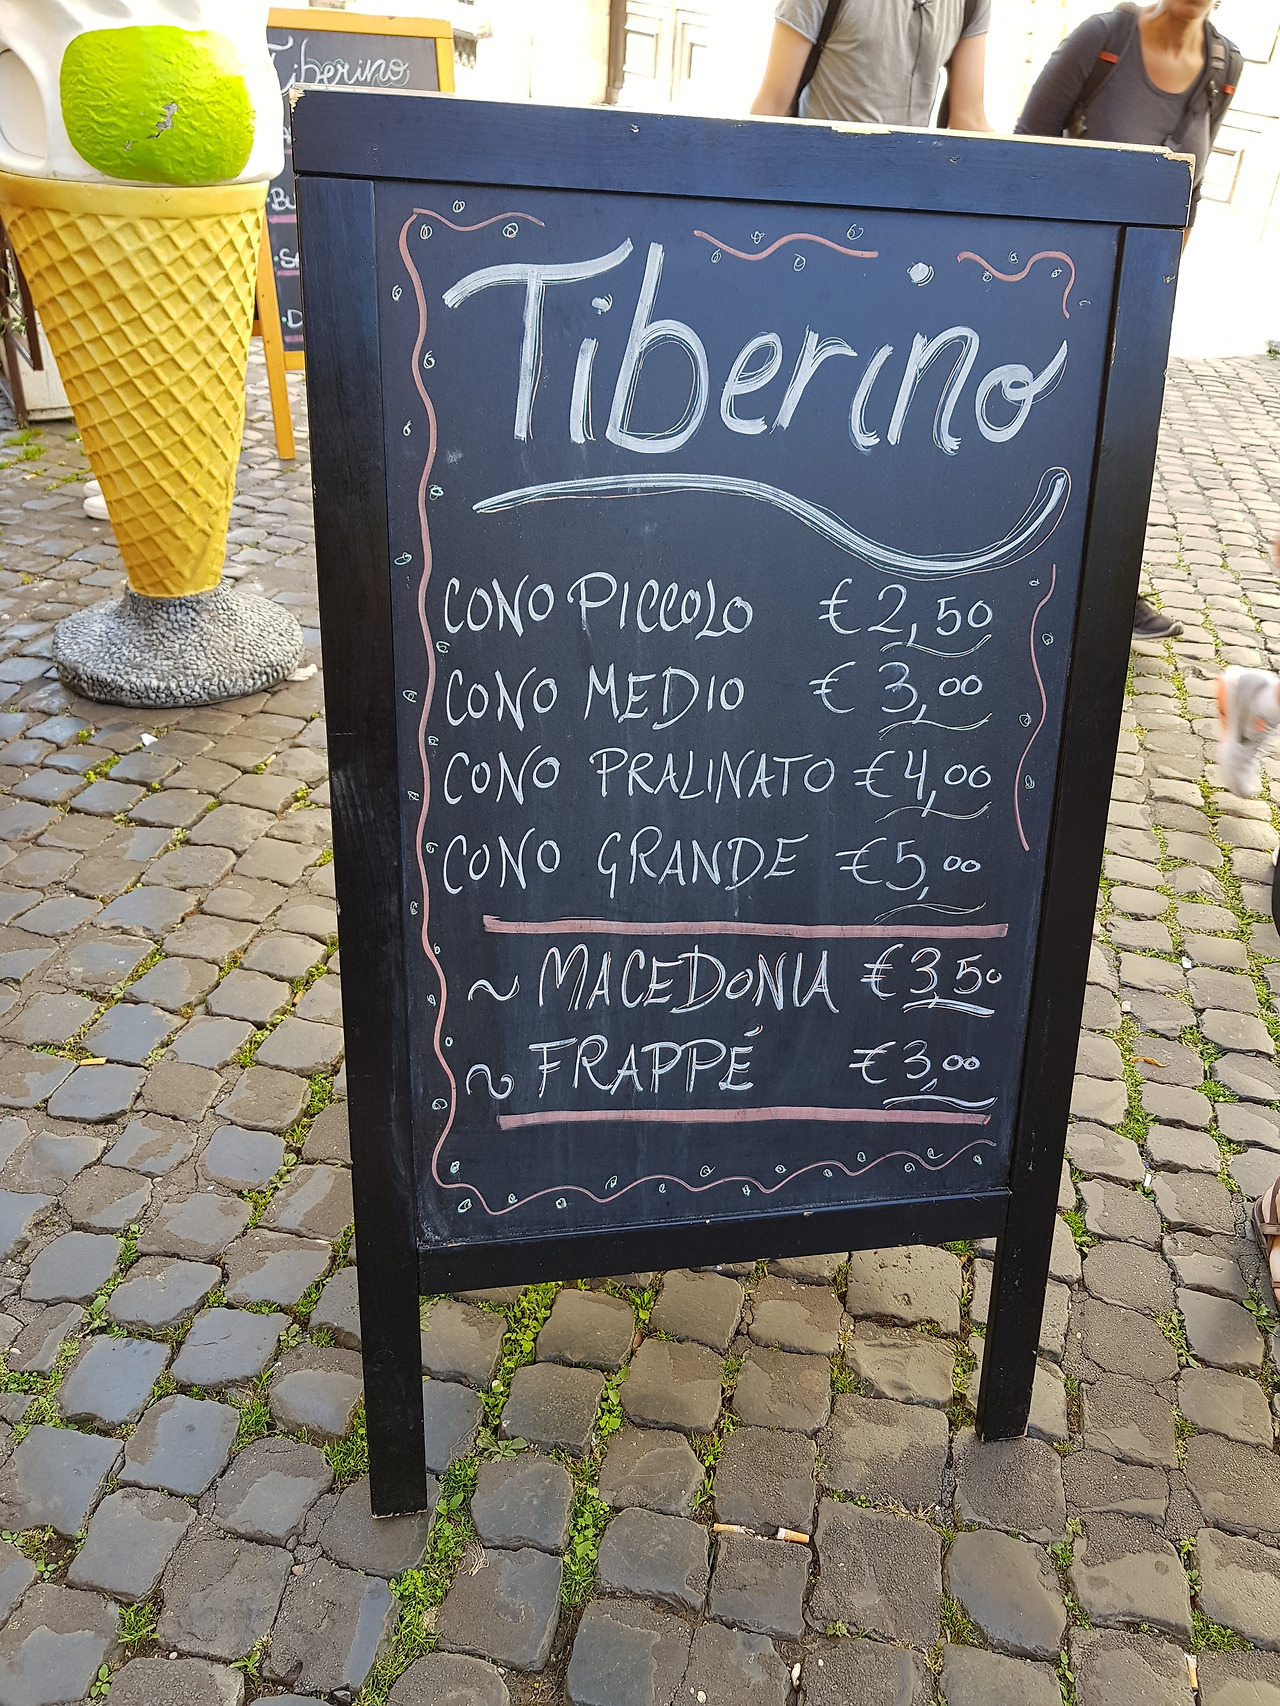 Tiberino
Tiberino
CONO PICCOLO € 2,50
CONO MEDIO € 3,00
CONO PRALINATO € 4,00
CONO GRANDE € 5,00
~ MACEDONIA € 3,50
~ FRAPPÉ € 3,00